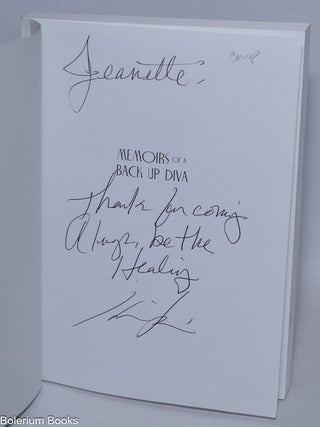 Jeanette:
MEMOIRS OF A
BACK UP DIVA
Thank for coming
be the
Healing
Bolerium Books